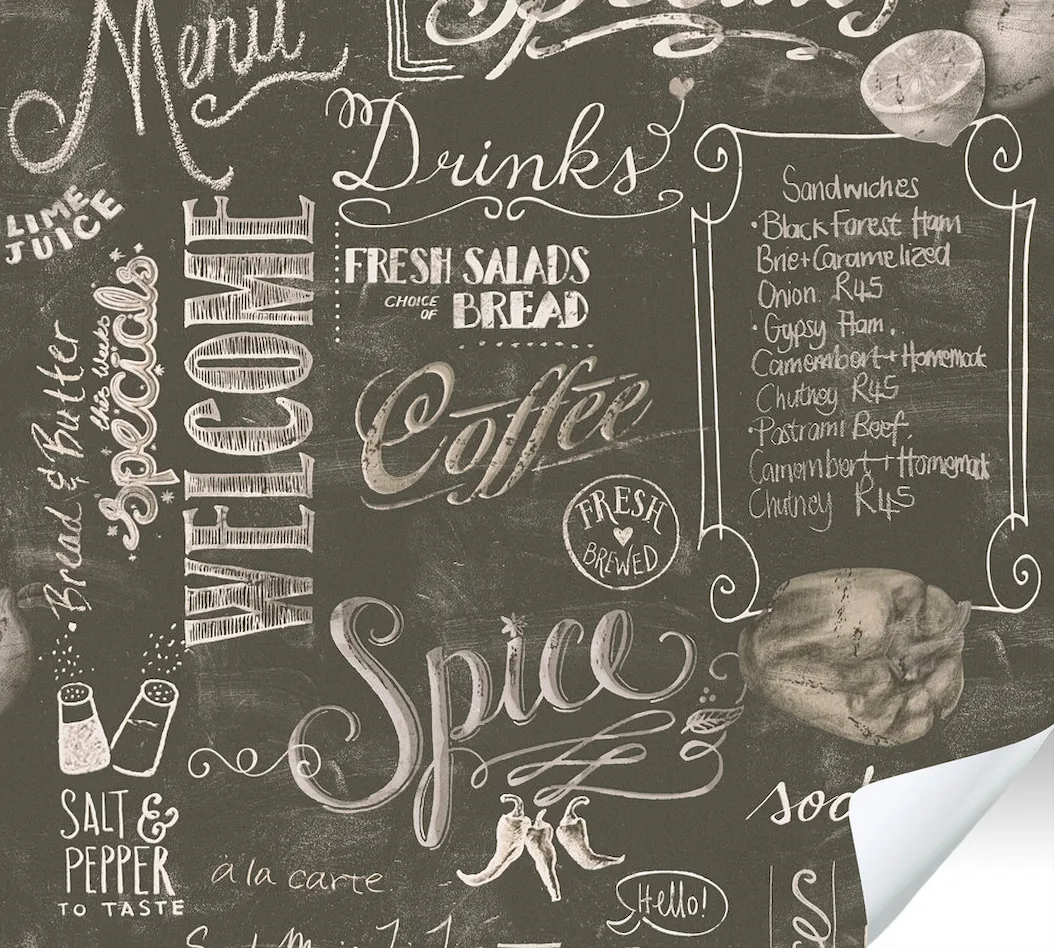 Menu
Drinks
LIME
JUICE
FRESH SALADS
CHOICE
OF
BREAD
this weeks
specials
WELCOME
Bread & Butter
Coffee
FRESH
BREWED
Sandwiches
• Black Forest Ham
Brie + Caramelized
Onion R45
• Gypsy Ham.
Camembert + Homemade
Chutney R45
• Pastrami Beef.
Camembert + Homemade
Chutney R45
Spice
SALT &
PEPPER
TO TASTE
à la carte
Hello!